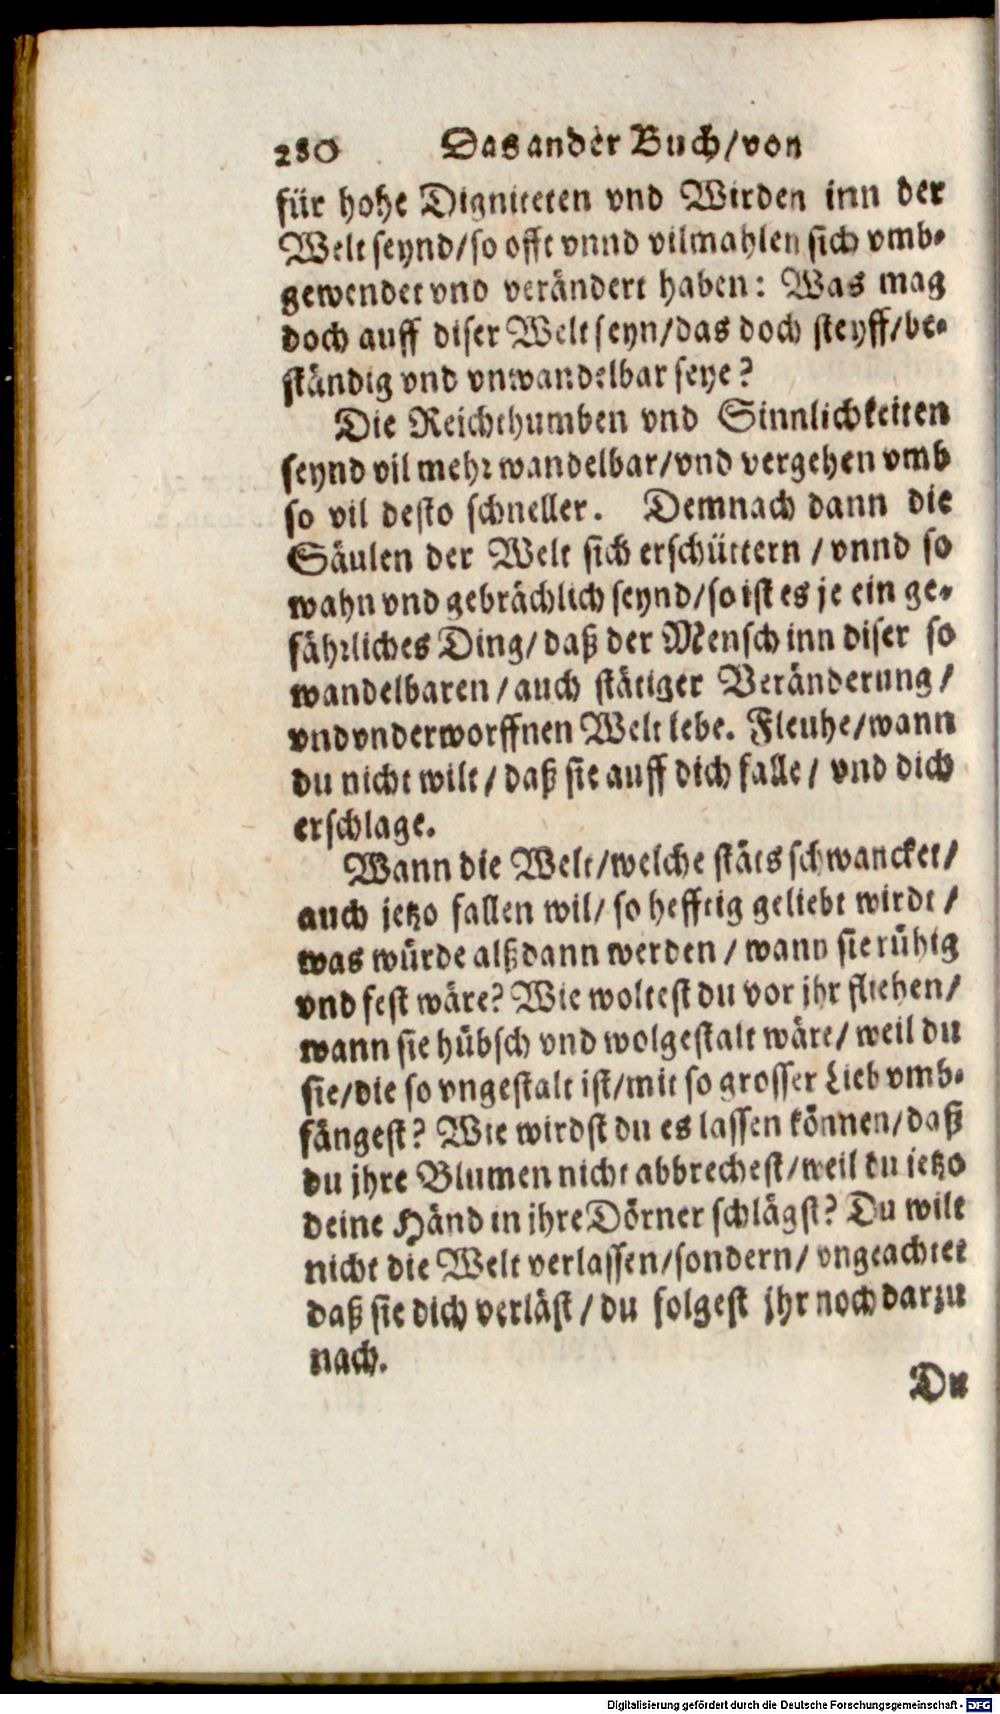 280 Das ander Buch/von
für hohe Digniteten vnd Wirden inn der
Welt seynd/so offt vnnd vilmahlen sich vmb-
gewendet vnd verändert haben: Was mag
doch auff diser Welt seyn/das doch steyff/be-
ständig vnd vnwandelbar seye?
Die Reichthumben vnd Sinnlichkeiten
seynd vil mehr wandelbar/vnd vergehen vmb
so vil desto schneller. Demnach dann die
Säulen der Welt sich erschüttern / vnnd so
wahn vnd gebrächlich seynd/so ist es je ein ge-
fährliches Ding/ daß der Mensch inn diser so
wandelbaren / auch stätiger Veränderung /
vnd vnderworffnen Welt lebe. Fleuhe/wann
du nicht wilt / daß sie auff dich falle / vnd dich
erschlage.
Wann die Welt/welche stäts schwancket/
auch jetzo fallen wil/ so hefftig geliebt wirdt /
was würde alßdann werden / wann sie rühig
vnd fest wäre? Wie woltest du vor jhr fliehen/
wann sie hübsch vnd wolgestalt wäre/ weil du
sie/die so vngestalt ist/mit so grosser Lieb vmb-
fängest? Wie wirdst du es lassen können/daß
du jhre Blumen nicht abbrechest/weil du jetzo
deine Händ in ihre Dörner schlägst? Du wilt
nicht die Welt verlassen/sondern/ vngeachtet
daß sie dich verläst / du folgest jhr noch darzu
nach.
Du
Digitalisierung gefördert durch die Deutsche Forschungsgemeinschaft - DFG